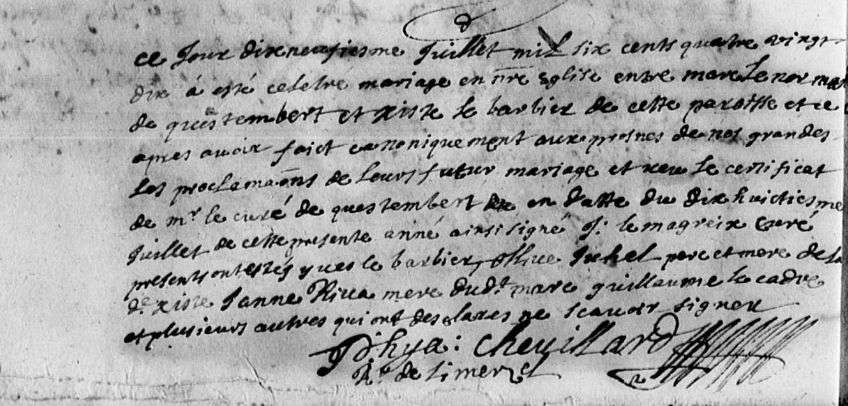 ce Jour dixneufiesme Juillet mil six cents quatre vingt
dix á esté celebre mariage en nre Eglise entre marc le nor man
de questembert et xiste le barbier de cette paroisse et ce
apres auoir faict canoniquement aux prosnes de nos grandes
les proclamaons de leurs futur mariage et veu le certificat
de mr le curé de questembert en datte du dixhuictiesme
Juillet de cette presente anné ainsi signé J: le magreix Curé
presents ont estés yues le barbier, oliue Juhel pere et mere de la
de xiste Janne Riua mere du dt marc guillaume le cadre
et plusieurs autres qui ont desclares ne scauoir signer
hya: cheuillard
de Limerzel